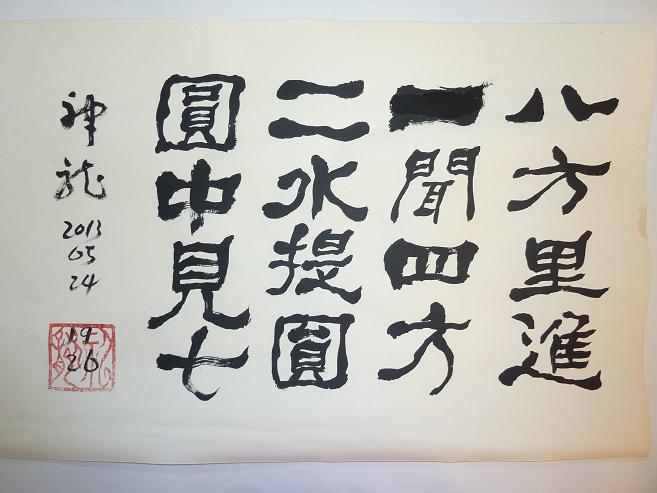 八方里進
一聞四方
二水提圓
圓中見七
神龍
2013
05
24
19
26